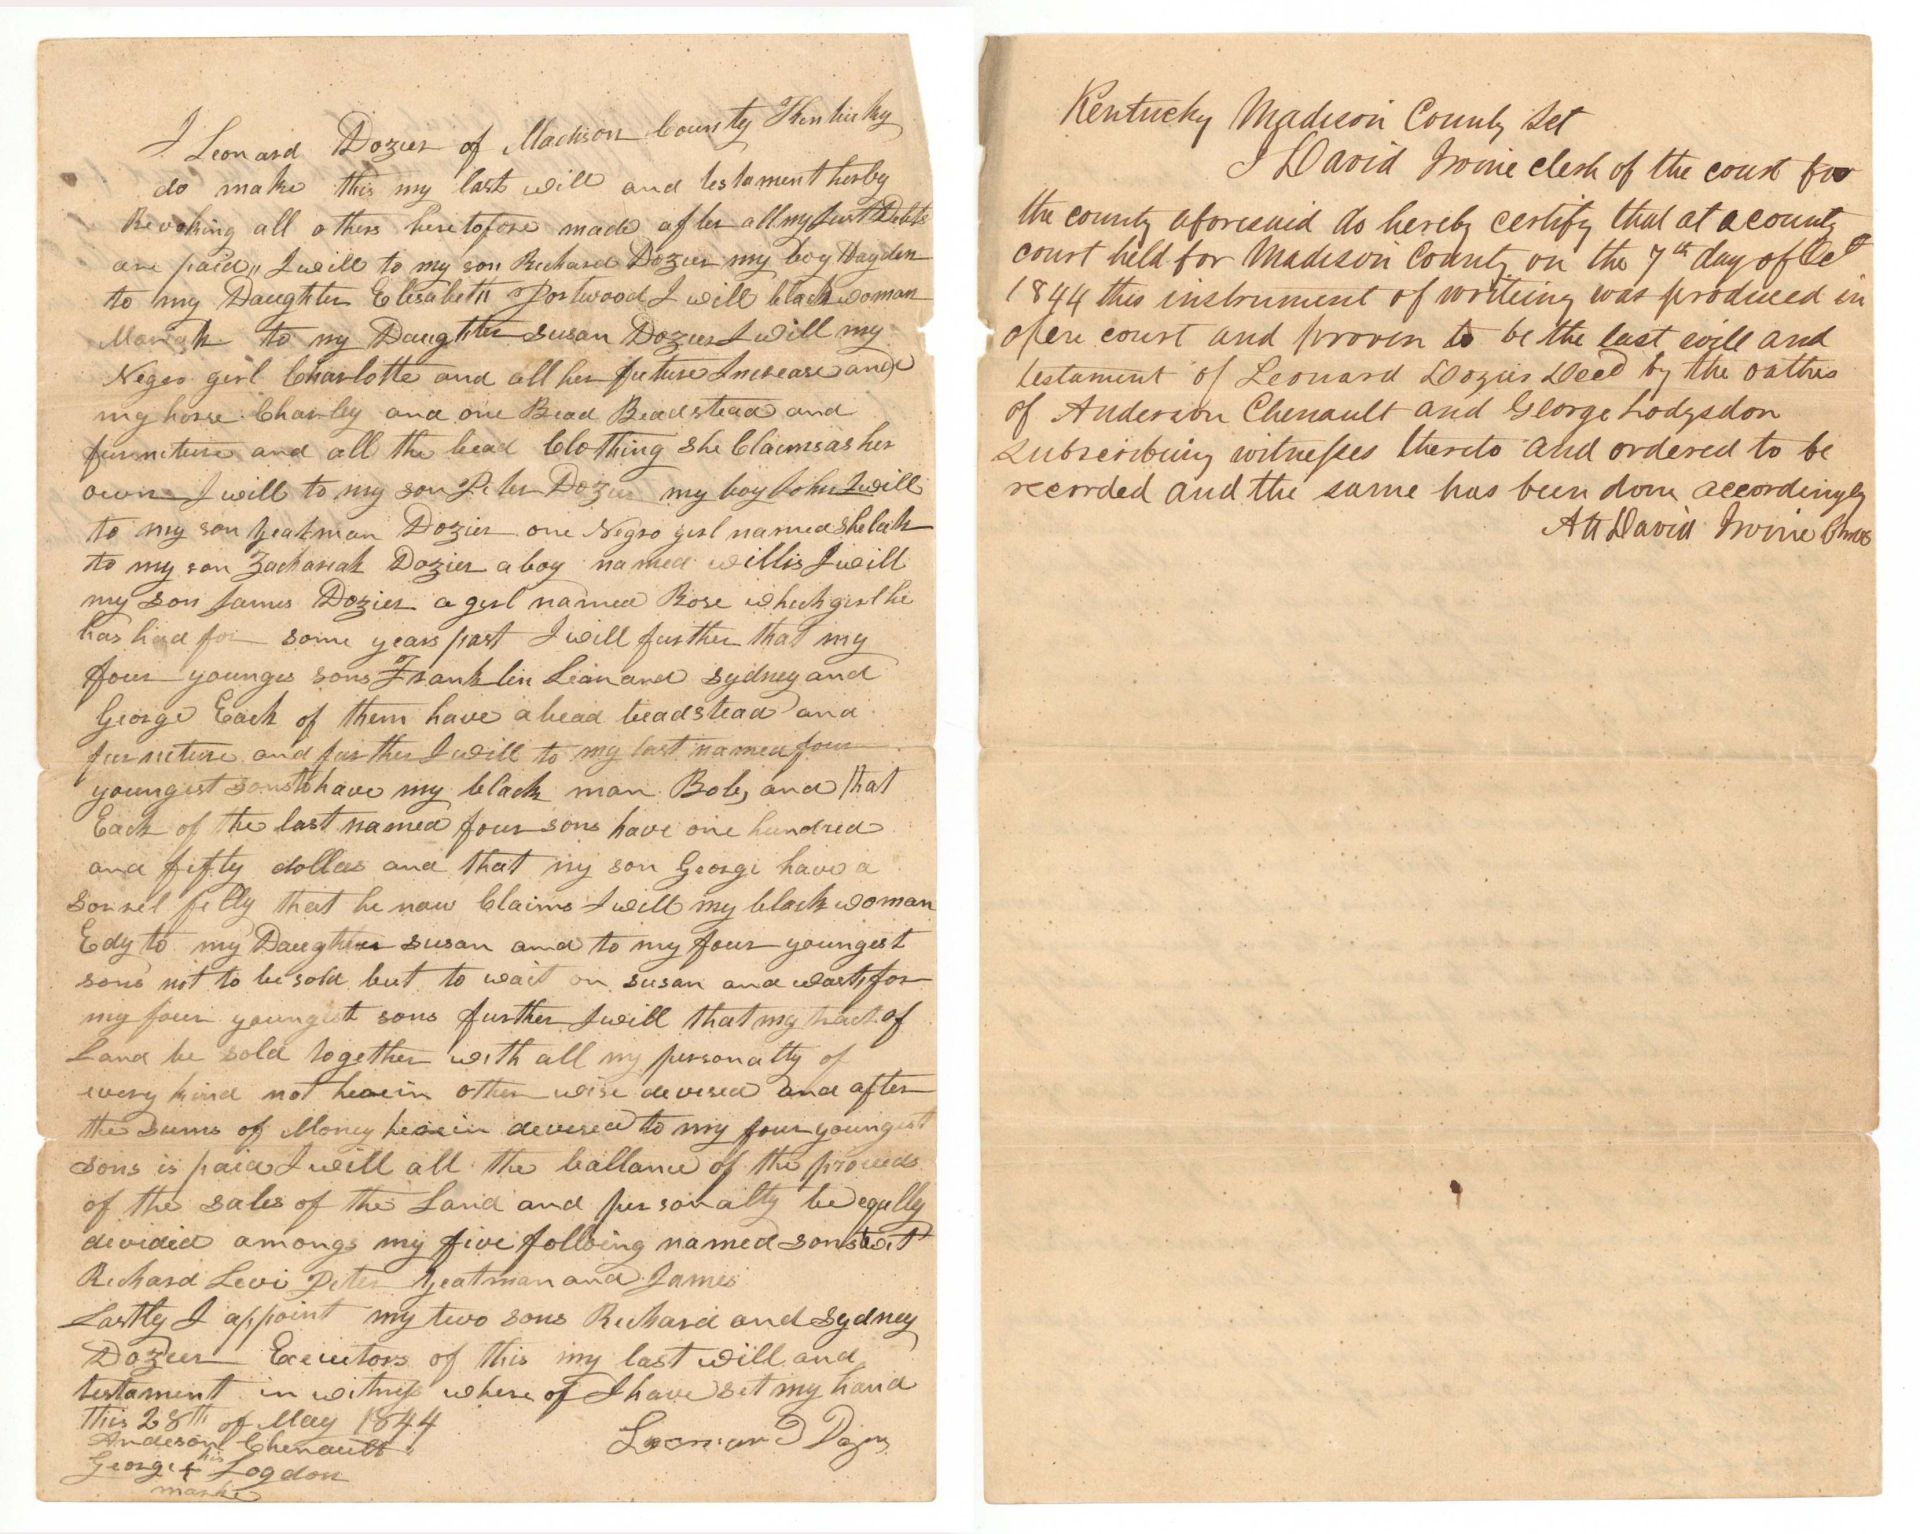 I Leonard Dozier of Madison County Kentucky
do make this my last will and testament herby
Revoking all others heretofore made after all my Just Debts
are paid,, I will to my son Richard Dozier my boy Hayden
to my Daughter Elisabeth Portwood I will black woman
Mariah to my Daughter Susan Dozier I will my
Negro girl Charlotte and all her future Increase and
my horse Charley and one Bead Beadstead and
furneture and all the bead Clothing she Claims as her
own I will to my son Peter Dozier my boy John I will
to my son Yeatman Dozier one Negro girl named Shelah
to my son Zachariah Dozier a boy named willis I will
my son James Dozier a girl named Rose which girl he
has had for some years past I will further that my
four younges sons Franklin Leanard Sydney and
George Each of them have a bead beadstead and
furneture and further I will to my last named four
youngest sons to have my black man Bob, and that
Each of the last named four sons have one hundred
and fifty dollas and that my son George have a
Sorrel filly that he now Claims I will my black woman
Edy to my Daughter Susan and to my four youngest
sons not to be sold but to wait on Susan and wash for
my four youngest sons further I will that my tract of
Land be sold together with all my personalty of
every kind not herein other wise devised and after
the sums of Money herein devised to my four youngest
sons is paid I will all the ballance of the proceeds
of the sales of the Land and personalty be eqully
devided amongs my five following named sons towit
Richard Levi Peter Yeatman and James
Lastly I appoint my two sons Richard and Sydney
Dozier Executors of this my last will and
testament in witness where of I have set my hand
this 28th of May 1844
Leonard Dozier
Anderson Chenault
George + his Logdon
marke
Kentucky Madison County Sct
I David Irvine clerk of the court for
the county aforesaid do hereby certify that at a county
court held for Madison County on the 7th day of Oct
1844 this instrument of writing was produced in
open court and proven to be the last will and
testament of Leonard Dozier Decd by the oathes
of Anderson Chenault and George Lodgsdon
subscribing witnesses thereto and ordered to be
recorded and the same has been done accordingly
Att David Irvine Cmcc